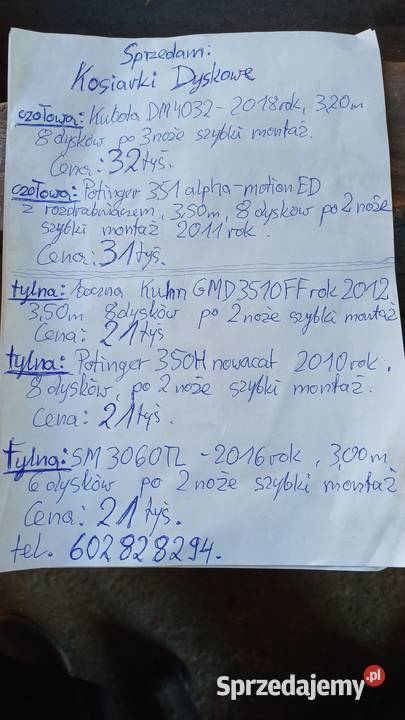 Sprzedam:
Kosiarki Dyskowe
czołowa: Kubota DM4032 - 2018 rok, 3,20m
8 dysków po 3 noże szybki montaż.
Cena: 32 tyś.
czołowa: Potinger 351 alpha-motion ED
z rozdrabniaczem, 3,50m, 8 dysków po 2 noże
szybki montaż 2011 rok.
Cena: 31 tyś.
tylna: boczna Kuhn GMD 3510 FF rok 2012
3,50m 8 dysków po 2 noże szybki montaż
Cena: 21 tyś
tylna: Potinger 350H novacat 2010 rok.
8 dysków, po 2 noże szybki montaż.
Cena: 21 tyś.
Tylna: SM 3060TL - 2016 rok, 3,00m
6 dysków po 2 noże szybki montaż
Cena: 21 tyś.
tel. 602828294.
Sprzedajemy.pl